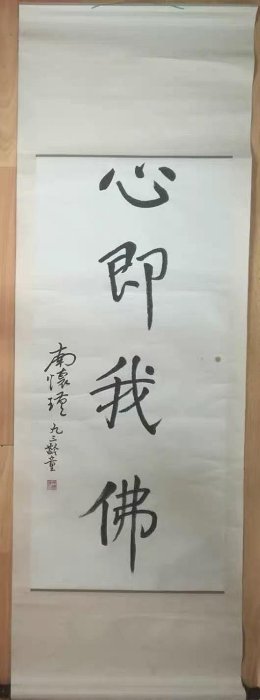 心即我佛
南懷瑾 九三龄童